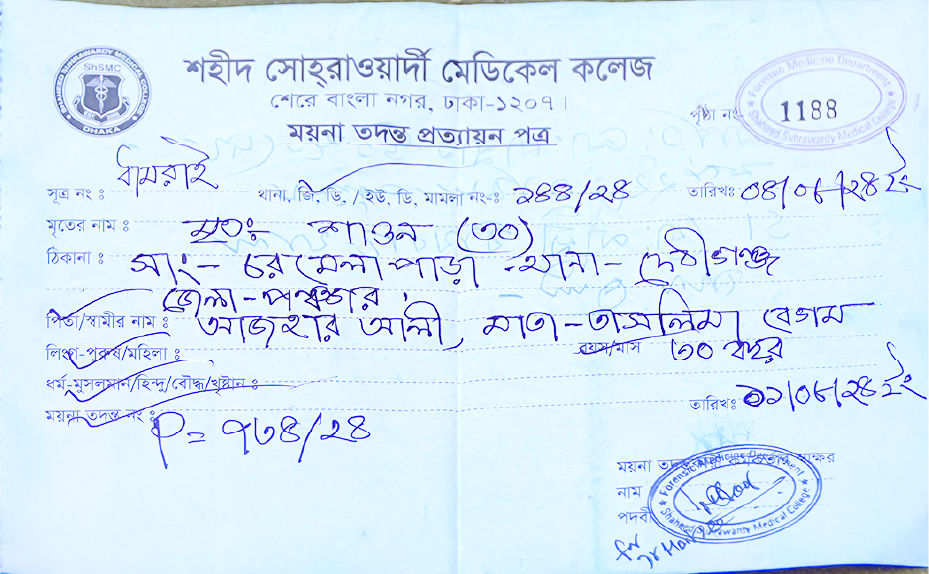 শহীদ সোহ্‌রাওয়ার্দী মেডিকেল কলেজ
শেরে বাংলা নগর, ঢাকা-১২০৭।
ময়না তদন্ত প্রত্যায়ন পত্র
SHAHEED SUHRAWARDY MEDICAL COLLEGE
ShSMC
DHAKA
পৃষ্ঠা নং-
Forensic Medicine Department
1188
Shaheed Suhrawardy Medical College
সূত্র নং : ধামরাই থানা, জি, ডি, /ইউ, ডি, মামলা নং-: ২৪৪/২৪ তারিখঃ ০৪/০৮/২৪ ইং
মৃতের নাম : মৃতঃ- শাওন (৩০)
ঠিকানা : সাং- চর মেলা পাড়া থানা- দেবীগঞ্জ
জেলা- পঞ্চগড়
পিতা/স্বামীর নাম : আজহার আলী মাতা- তাসলিমা বেগম
লিঙ্গ-পুরুষ/মহিলা : বয়স/মাস ৩০ বছর
ধর্ম-মুসলমান/হিন্দু/বৌদ্ধ/খৃষ্টান :
ময়না তদন্ত নং : P= ৭৩৪/২৪ তারিখঃ ১১/০৮/২৪ ইং
ময়না স্বাক্ষর
নাম
পদবী
Forensic Medicine Department
Shaheed Suhrawardy Medical College